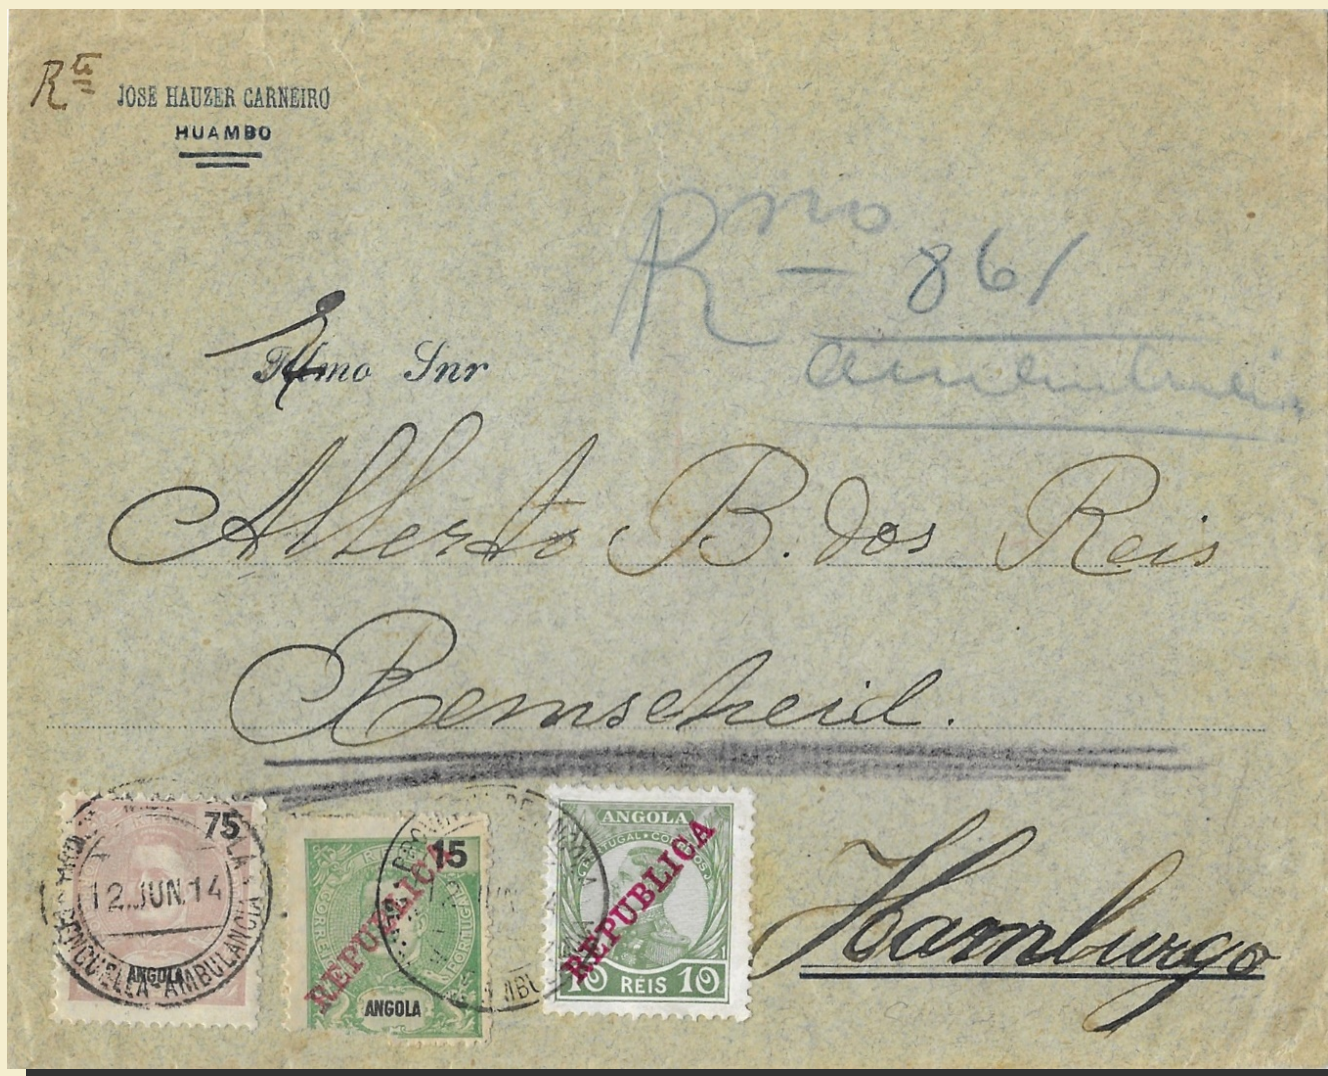 Rte
JOSE HAUZER CARNEIRO
HUAMBO
R no 861
Illmo Snr
Alberto B. dos Reis
Remscheid.
Hamburgo
75
12.JUN.14
BENGUELLA-AMBULANCIA
ANGOLA
15
REPUBLICA
CORREIOS
PORTUGAL
ANGOLA
ANGOLA
PORTUGAL CORREIOS
REPUBLICA
10 REIS 10